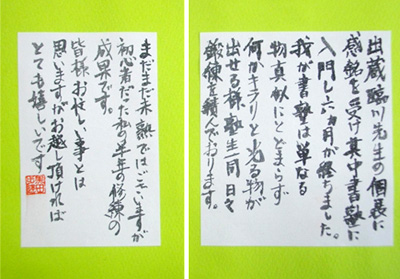 出蔵臨川先生の個展に
感銘を受け其中書塾に
入門し六カ月が経ちました。
我が書塾は単なる
物真似にとどまらず
何かキラリと光る物が
出せる様塾生一同日々
鍛練を積んでおります。
まだまだ未熟ではございますが
初心者だった私の半年の修練の
成果です。
皆様お忙しい事とは
思いますがお越し頂ければ
とても嬉しいです